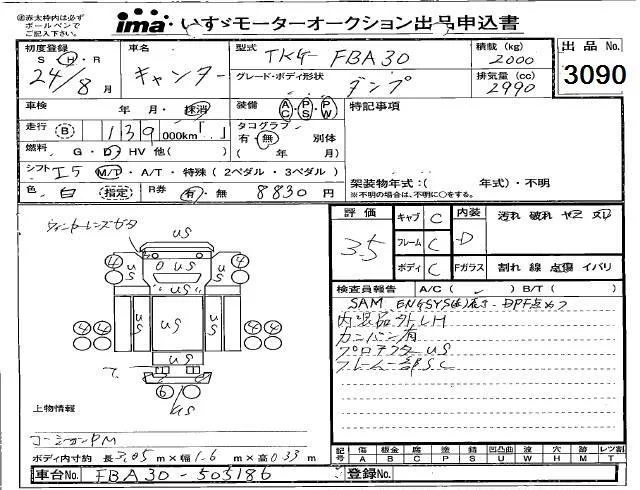 ㊟赤太枠内は必ず
ボールペンで
ご記入下さい。
ima いすゞモーターオークション出品申込書
初度登録 S H R 24/8月
車名 キャンター
型式 TKG-FBA30
積載(kg) 2000
出品No. 3090
グレード・ボディ形状 ダンプ
排気量(cc) 2990
車検 年 月・抹消
装備 AC・PS・PW
特記事項
走行 B 139 000km「 」
タコグラフ 有・無 別体
( 年 月)
燃料 G・D・HV 他( )
シフト I5 M/T・A/T・特殊(2ペダル・3ペダル)
架装物年式:( 年式)・不明
※不明の場合は、不明に○をする。
色 白 指定 R券 有・無 8830円
評価 3.5
キャブ C 内装 D 汚れ 破れ ヤニ
フレーム C
ボディ C Fガラス 割れ 線 点傷 イバリ
ウィンカーレンズガタ
US
4 US 0 US US 4
US
US US US
4 4 4 4
US
7.
6
US
検査員報告 A/C( ) B/T( )
SAM ENGSYS
内装品外しLH
カンバン有
プロテクターUS
フレーム一部SC
上物情報
コーションPM
ボディ内寸約 長3.05m×幅1.6m×高0.33m
記号 傷A 板金B 腐C 塗P 錆S 凹凸曲U 波W 穴H 跡M レンズ割T
車台No. FBA30-505186 登録No.